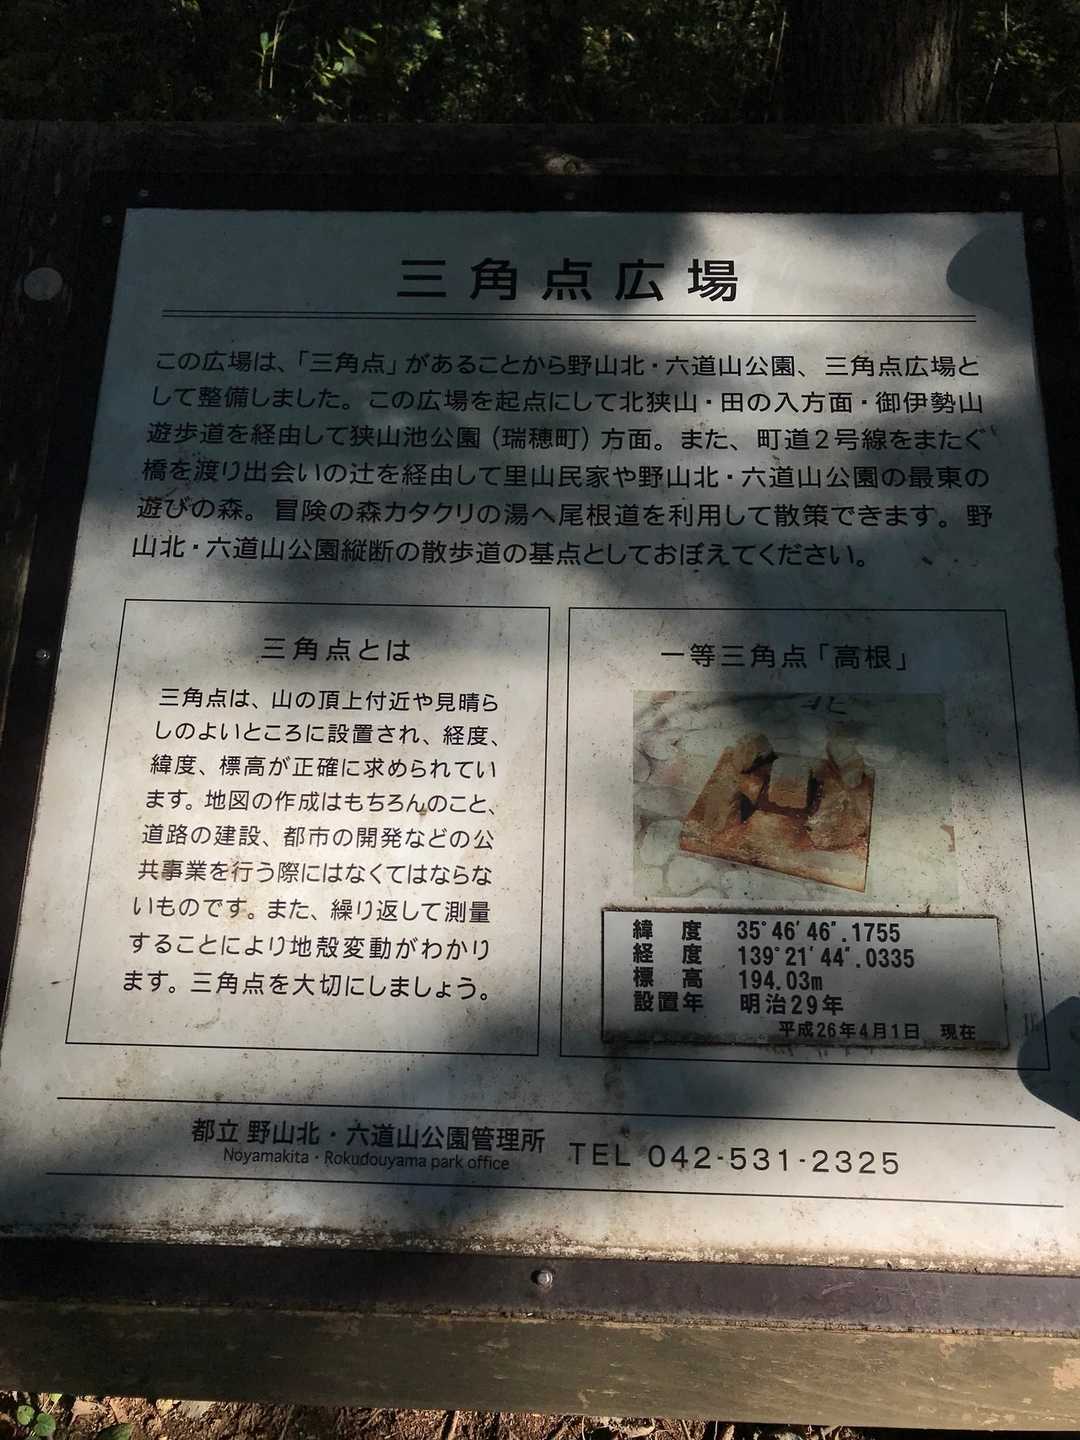 三角点広場
この広場は、「三角点」があることから野山北・六道山公園、三角点広場と
して整備しました。この広場を起点にして北狭山・田の入方面・御伊勢山
遊歩道を経由して狭山池公園（瑞穂町）方面。また、町道２号線をまたぐ
橋を渡り出会いの辻を経由して里山民家や野山北・六道山公園の最東の
遊びの森。冒険の森カタクリの湯へ尾根道を利用して散策できます。野
山北・六道山公園縦断の散歩道の基点としておぼえてください。
三角点とは
三角点は、山の頂上付近や見晴ら
しのよいところに設置され、経度、
緯度、標高が正確に求められてい
ます。地図の作成はもちろんのこと、
道路の建設、都市の開発などの公
共事業を行う際にはなくてはならな
いものです。また、繰り返して測量
することにより地殻変動がわかり
ます。三角点を大切にしましょう。
一等三角点「高根」
北
緯度 35°46′46″.1755
経度 139°21′44″.0335
標高 194.03m
設置年 明治29年
平成26年4月1日 現在
都立 野山北・六道山公園管理所 TEL 042-531-2325
Noyamakita・Rokudouyama park office